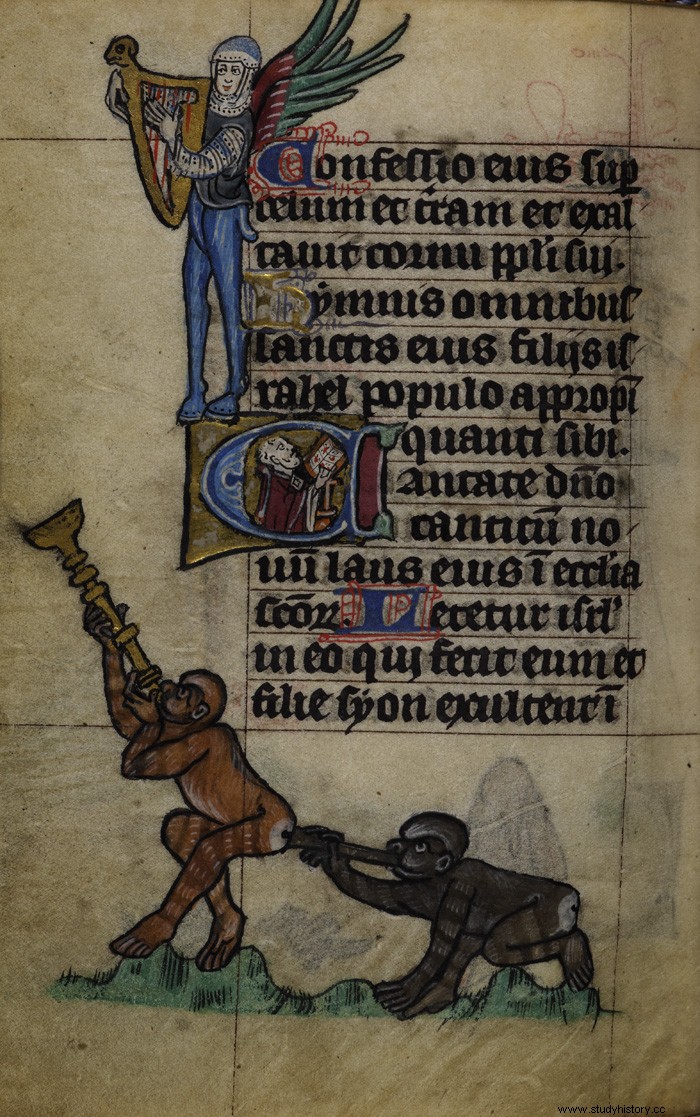 Confessio eius sup̱
celum et t̄ram et exal
tauit cornu ppl̄i sui.
Hymnus omnibus
sanctis eius filijs is
rahel populo appropi
quanti sibi.
Cantate dn̄o
canticū no
uū laus eius ī eccl̄ia
sc̄oꝝ. Letetur isrl'
in eo qui fecit eum et
filie syon exultent ī
www.studyhistory.cc